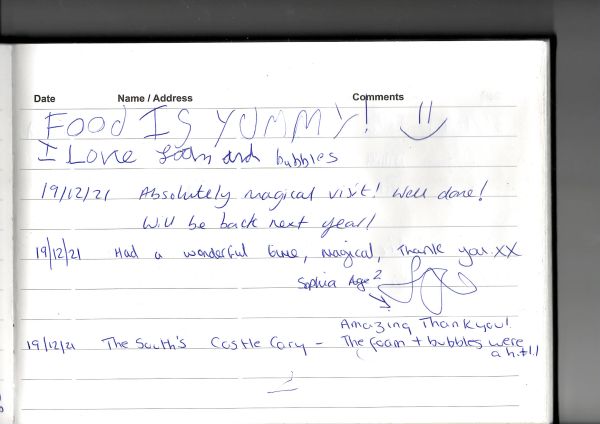 Date Name / Address Comments
FOOD IS YUMMY!
I Love foam and bubbles
19/12/21 Absolutely magical visit! Well done!
Will be back next year!
19/12/21 Had a wonderful time, magical, Thank you XX
Sophia Age 2
Amazing Thankyou!
19/12/21 The South's Castle Cary - The foam + bubbles were
a hit!!